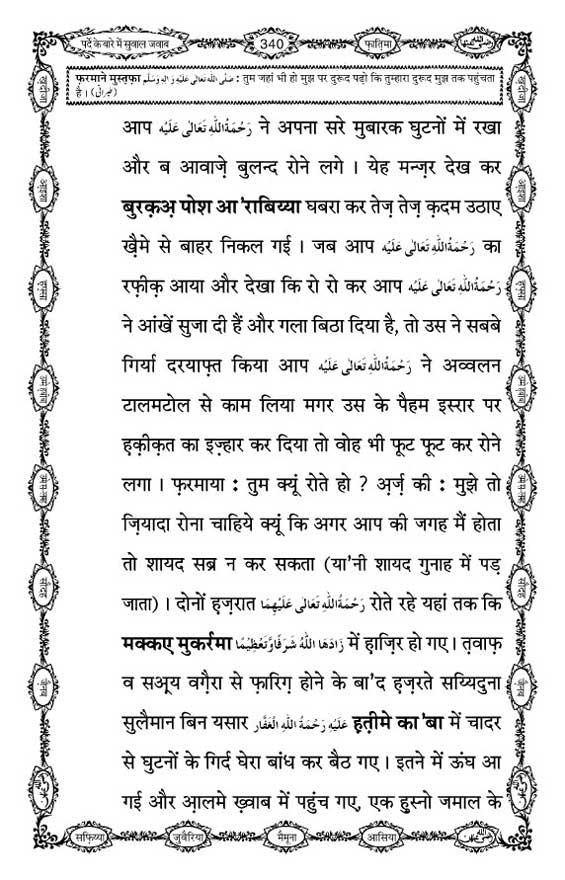 पर्दे के बारे में सुवाल जवाब
340
फ़ातिमा
फ़रमाने मुस्तफ़ा صَلَّى اللّٰه تَعَالٰى عَلَيْهِ وَ اٰلِهٖ وَسَلَّم : तुम जहां भी हो मुझ पर दुरूद पढ़ो कि तुम्हारा दुरूद मुझ तक पहुंचता
है । (طبرانی)
आप رَحْمَةُ اللّٰهِ تَعَالٰى عَلَيْه ने अपना सरे मुबारक घुटनों में रखा
और ब आवाज़े बुलन्द रोने लगे । येह मन्ज़र देख कर
बुरक़अ़ पोश आ'राबिय्या घबरा कर तेज़ तेज़ क़दम उठाए
ख़ैमे से बाहर निकल गई । जब आप رَحْمَةُ اللّٰهِ تَعَالٰى عَلَيْه का
रफ़ीक़ आया और देखा कि रो रो कर आप رَحْمَةُ اللّٰهِ تَعَالٰى عَلَيْه
ने आंखें सुजा दी हैं और गला बिठा दिया है, तो उस ने सबबे
गिर्या दरयाफ़्त किया आप رَحْمَةُ اللّٰهِ تَعَالٰى عَلَيْه ने अव्वलन
टालमटोल से काम लिया मगर उस के पैहम इस्रार पर
हक़ीक़त का इज़्हार कर दिया तो वोह भी फूट फूट कर रोने
लगा । फ़रमाया : तुम क्यूं रोते हो ? अ़र्ज़ की : मुझे तो
ज़ियादा रोना चाहिये क्यूं कि अगर आप की जगह मैं होता
तो शायद सब्र न कर सकता (या'नी शायद गुनाह में पड़
जाता) । दोनों ह़ज़रात رَحْمَةُ اللّٰهِ تَعَالٰى عَلَيْهِمَا रोते रहे यहां तक कि
मक्कए मुकर्रमा زَادَهَا اللّٰهُ شَرَفًا وَّتَعْظِيْمًا में ह़ाज़िर हो गए । त़वाफ़
व सअ़्य वग़ैरा से फ़ारिग़ होने के बा'द ह़ज़रते सय्यिदुना
सुलैमान बिन यसार عَلَيْهِ رَحْمَةُ اللّٰهِ الْغَفَّار ह़त़ीमे का'बा में चादर
से घुटनों के गिर्द घेरा बांध कर बैठ गए । इतने में ऊंघ आ
गई और आ़लमे ख़्वाब में पहुंच गए, एक ह़ुस्नो जमाल के
सफ़िय्या
जुवैरिया
मैमूना
आसिया